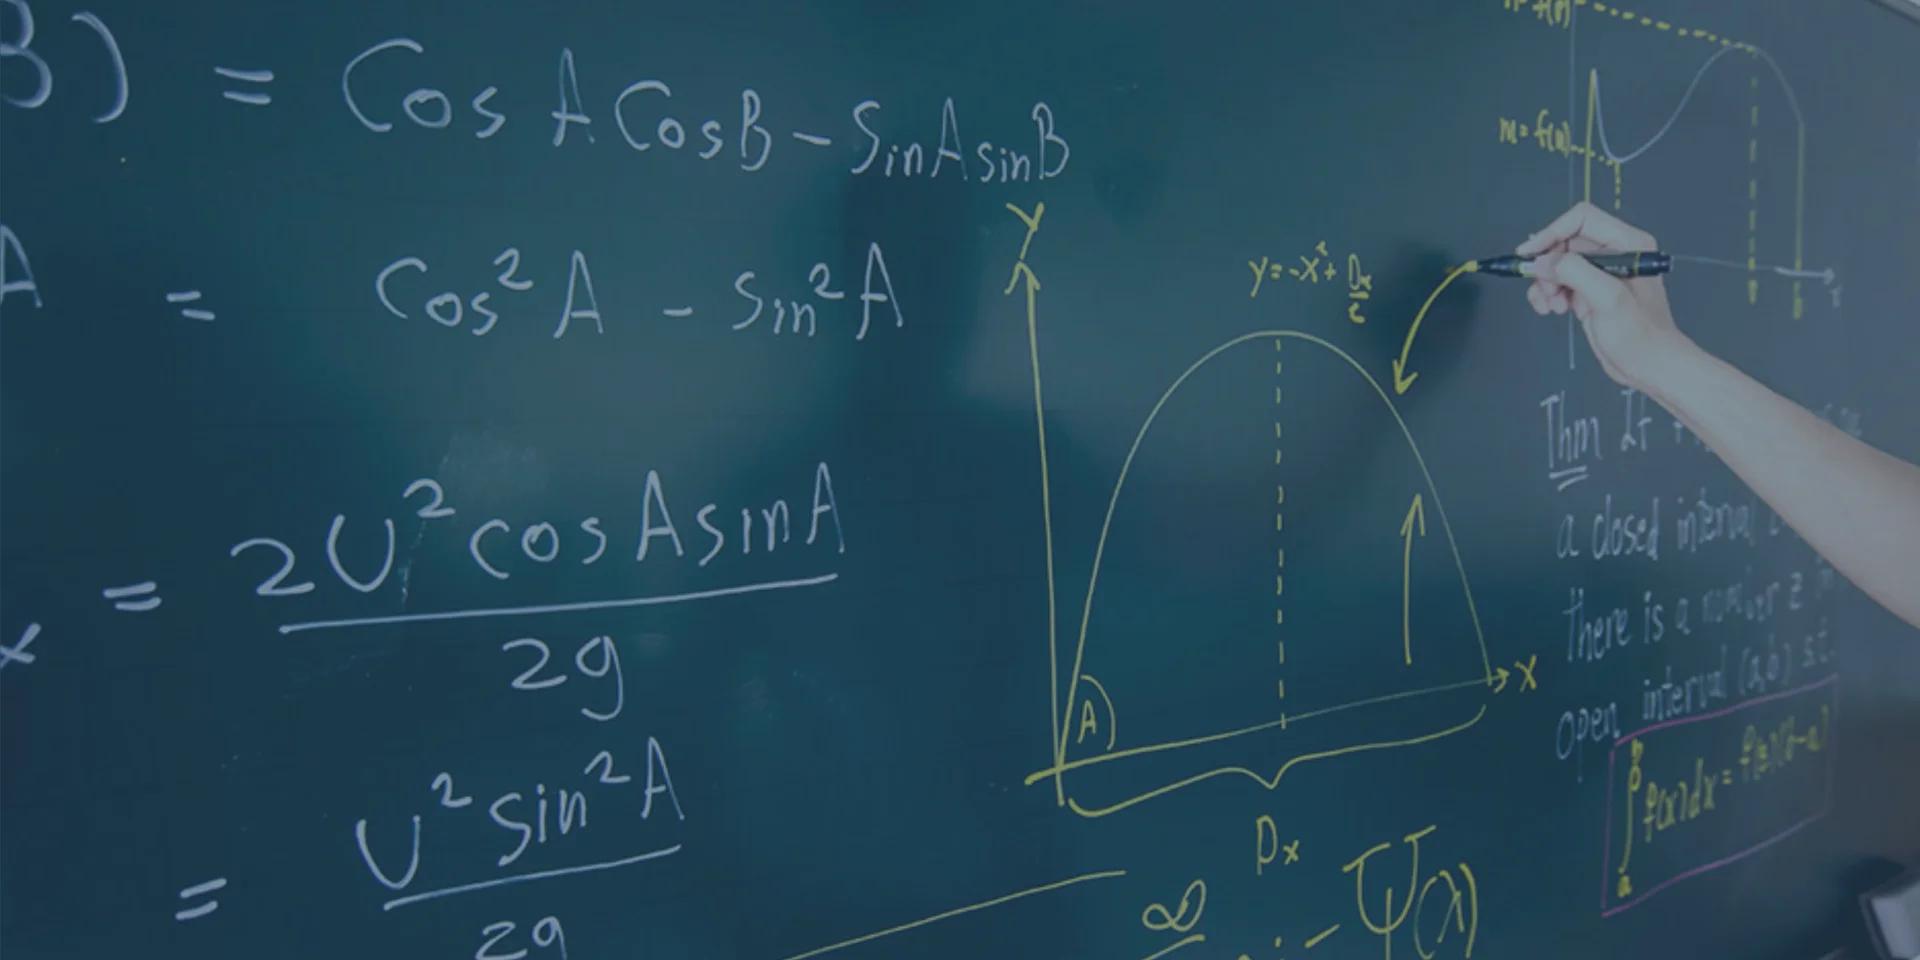 B) = Cos A Cos B - Sin A sin B
A = Cos² A - Sin² A
x = 2U² cos A sin A / 2g
= U² sin² A / 2g
Y
y = -x² +
A
X
Dx
∞
Ψ(x)
m = f(u)
b
x
Thm If
a closed interval
there is a number z in
open interval (a,b) st.
∫ₐᵇ f(x)dx = f(z)(b-a)